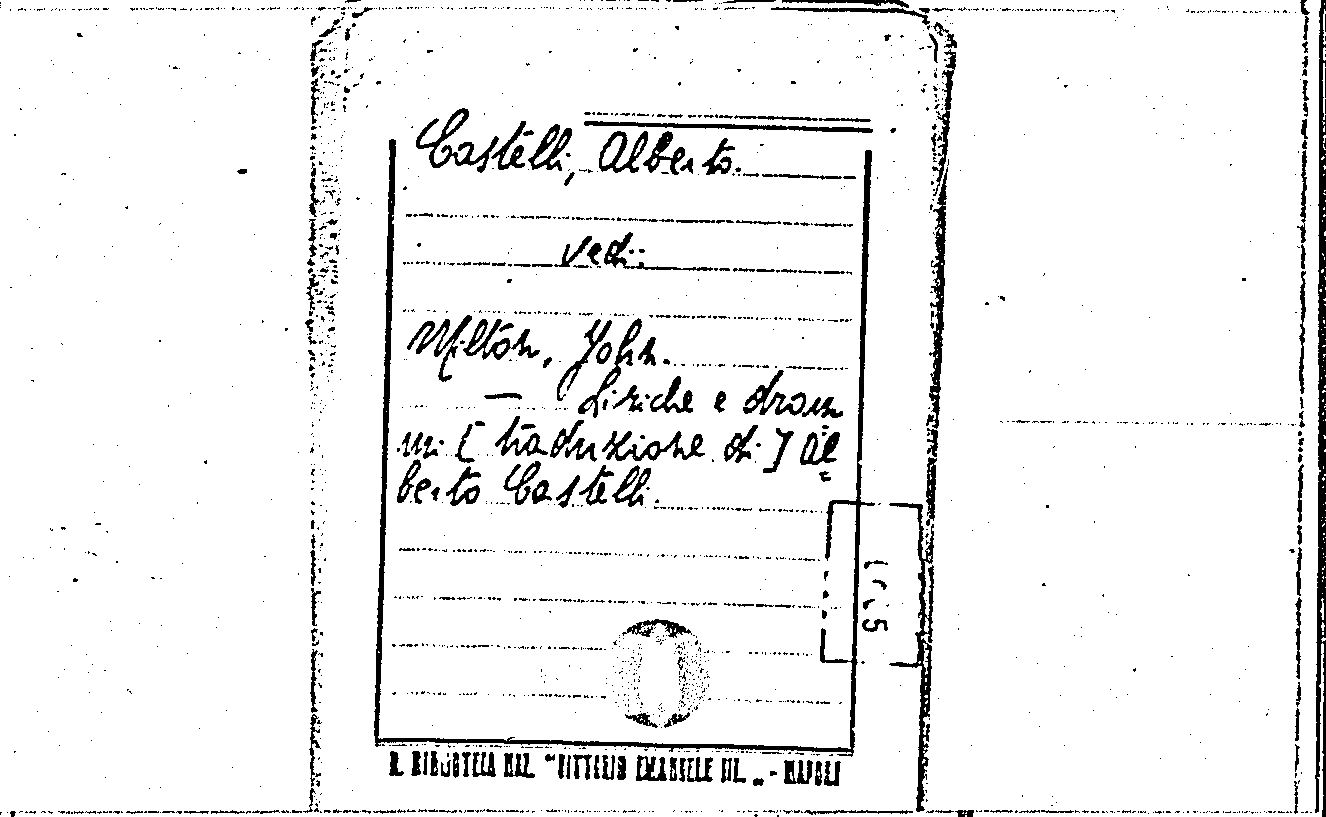 Castelli, Alberto.
vedi:
Milton, John.
— Liriche e dram
mi [traduzione di] Al=
berto Castelli.
R. BIBLIOTECA NAZ. "VITTORIO EMANUELE III. „ - NAPOLI